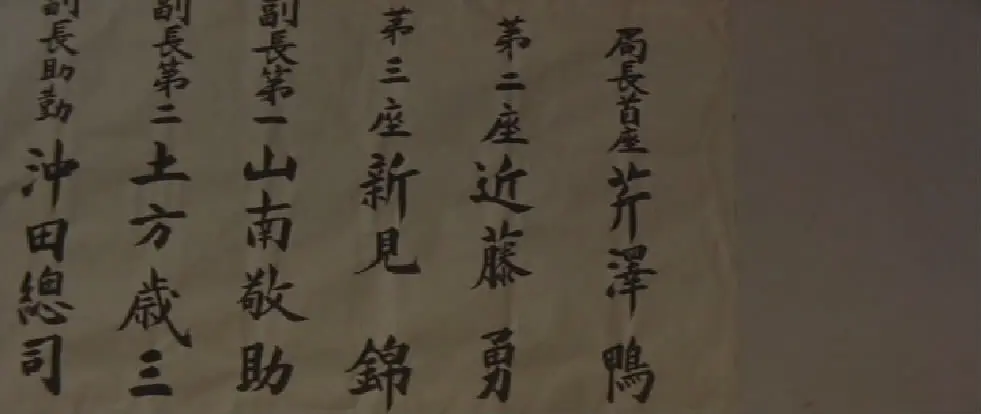 局長首座芹澤鴨
第二座近藤勇
第三座新見錦
副長第一山南敬助
副長第二土方歳三
副長助勤沖田總司